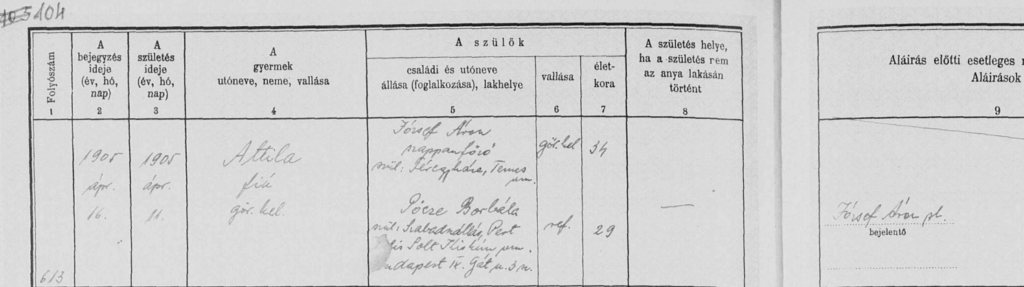 104
Folyószám
A bejegyzés ideje (év, hó, nap)
A születés ideje (év, hó, nap)
A gyermek utóneve, neme, vallása
A szülők
családi és utóneve állása (foglalkozása), lakhelye
vallása
életkora
A születés helye, ha a születés nem az anya lakásán történt
Aláírás előtti esetleges
Aláírások
1 2 3 4 5 6 7 8 9
1905 ápr. 16.
1905 ápr. 11.
Attila
fiú
gör. kel.
József Áron
szappanfőző
szül: Temes
vm.
gör. kel
34
Pőcze Borbála
szül: Szabadszállás, Pest
Pilis Solt Kiskún vm.
Budapest IX. Gát u. 3 sz.
ref.
29
—
József Áron
bejelentő
613